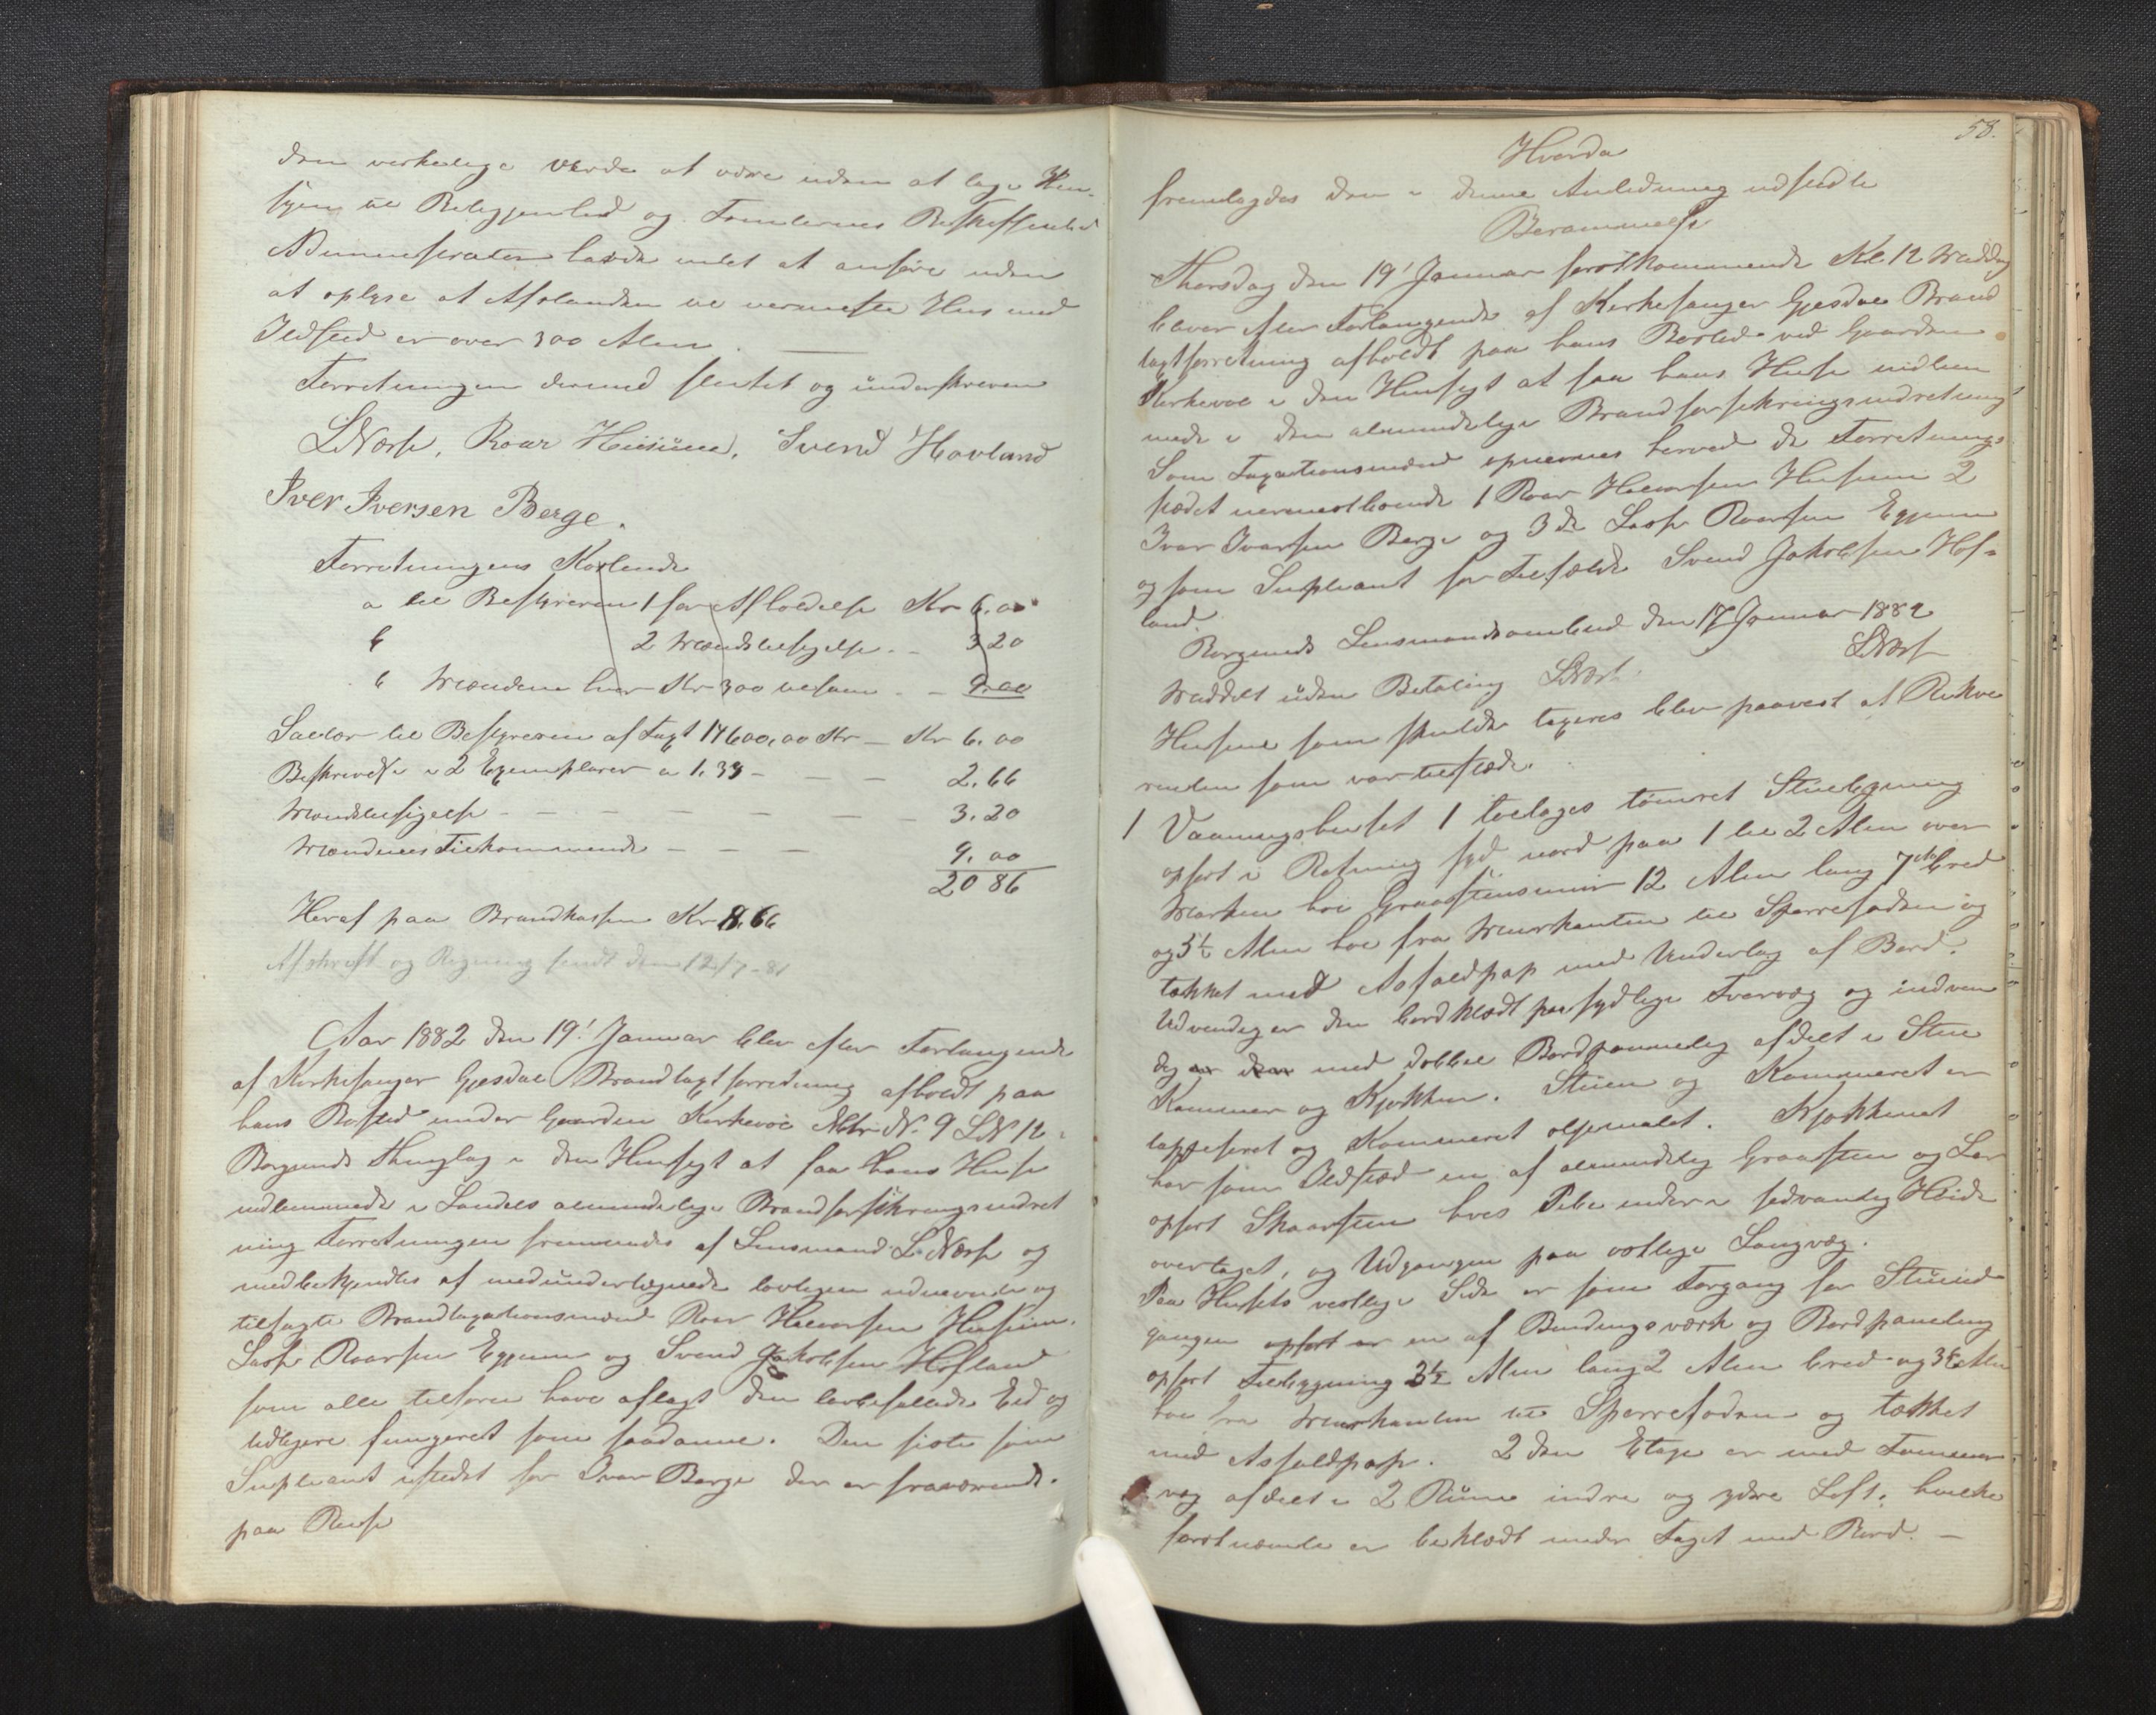 den virkelige Verdi at være uden at tage Hen-
syn til Beliggenhed og Tomternes Beskaffenhed
Administrator havde intet at anføre uden
at oplyse at Afstanden til nærmeste Hus med
Ildsted er over 300 Alen.
Forretningen dermed sluttet og underskreven
LNæss, Roar Husum, Svend Hovland
Iver Iversen Berge.
Forretningens Kostende
a til Bestyreren 1 for Afholdelse Kr 6.00
b 2 Mændstilsigelse - 3 20
c Mændene hver Kr 300 tilsam - 9.00
Salær til Bestyreren af Taxt 14600,00 Kr - Kr 6.00
Beskrivelse i 2 Exemplarer a 1.33 - - - 2.66
Mændstilsigelse - - - - - - 3.20
Mændenes Tilkommende - - - 9.00
20 86
Heraf paa Brandkassen Kr 8.66
Afskrift og Regning sendt den 12/7-81
Aar 1882 den 19' Januar blev efter Forlangende
af Kirkesanger Gjesdal Brandtaxtforretning afholdt paa
hans Bosted under Gaarden Kirkevol Matr N. 9 LN 12
Borgunds Thinglag i den Hensigt at faa hans Huse
indlemmede i Landets almindelige Brandforsikringsindret
ning Forretningen fremmedes af Lensmand L. Næss og
medbetjentes af medundertegnede lovligen udnævnte og
tilsagte Brandtaxationsmænd Roar Halvorsen Husum.
Lasse Roarsen Eggum og Svend Jakobsen Hofland
som alle tilforn have aflagt den lovbefallede Eed og
tidligere fungeret som saadanne. Den siste som
Supleant istedet for Ivar Berge der er fraværende.
paa Reise
58.
Hvorda
fremlagdes den i denne Anledning udstedte
Berammelse
Thorsdag den 19' Januar førstkommende Kl 12 Middag
bliver efter Forlangende af Kirkesanger Gjesdal Brand
taxtforretning afholdt paa hans Bosted ved Gaarden
Kirkevol i den Hensigt at faa hans Huse indlem
mede i den almindelige Brandforsikringsindretning
Som Taxationsmænd opnævnes herved de Forretnings
stedet nærmestboende 1 Roar Halvorsen Husum 2
Ivar Ivarsen Berge og 3de Lasse Roarsen Eggum
og som Supleant for Tilfælde Svend Jakobsen Hof-
land.
Borgunds Lensmandsombud den 17 Januar 1882
LNæss
Meddelt uden Betaling LNæss.
Husene som skulde taxeres blev paavist af Rekvi
renten som var tilstæde.
1 Vaaningshuset 1 toetages tømret Stuebygning
opført i Retning syd nord paa 1 til 2 Alen over
Marken høi Graastensmuur 12 Alen lang 7 do bred
og 5½ Alen høi fra Muurkanten til Sperrefoden og
tækket med Asfaldpap med Underlag af Bord.
Udvendig er den bordklædt paa sydlige Tværvæg og indven
dig er den med dobbel Bordpanneling afdelt i Stue
Kammer og Kjøkken. Stuen og Kammeret er
tappeseret og Kammeret oljemalet. Kjøkkenet
har som Ildsted en af almindelig Graasten og Ler
opført Skaarsten hvis Pibe under i sedvanlig Høide
overtaget, og Udgangen paa østlige Langvæg.
Paa Husets vestlige Side er som Forgang for Stueind
gangen opført er en af Bindingsværk og Bordpaneling
opført Tilbygning 3½ Alen lang 2 Alen bred og 3½ Alen
høi fra Muurkanten til Sperrefoden og tækket
med Asfaldpap. 2den Etage er med Tømmer
væg afdelt i 2 Rum indre og ydre Loft, hvilke
førstnævnte er beklædt under Taget med Bord. -